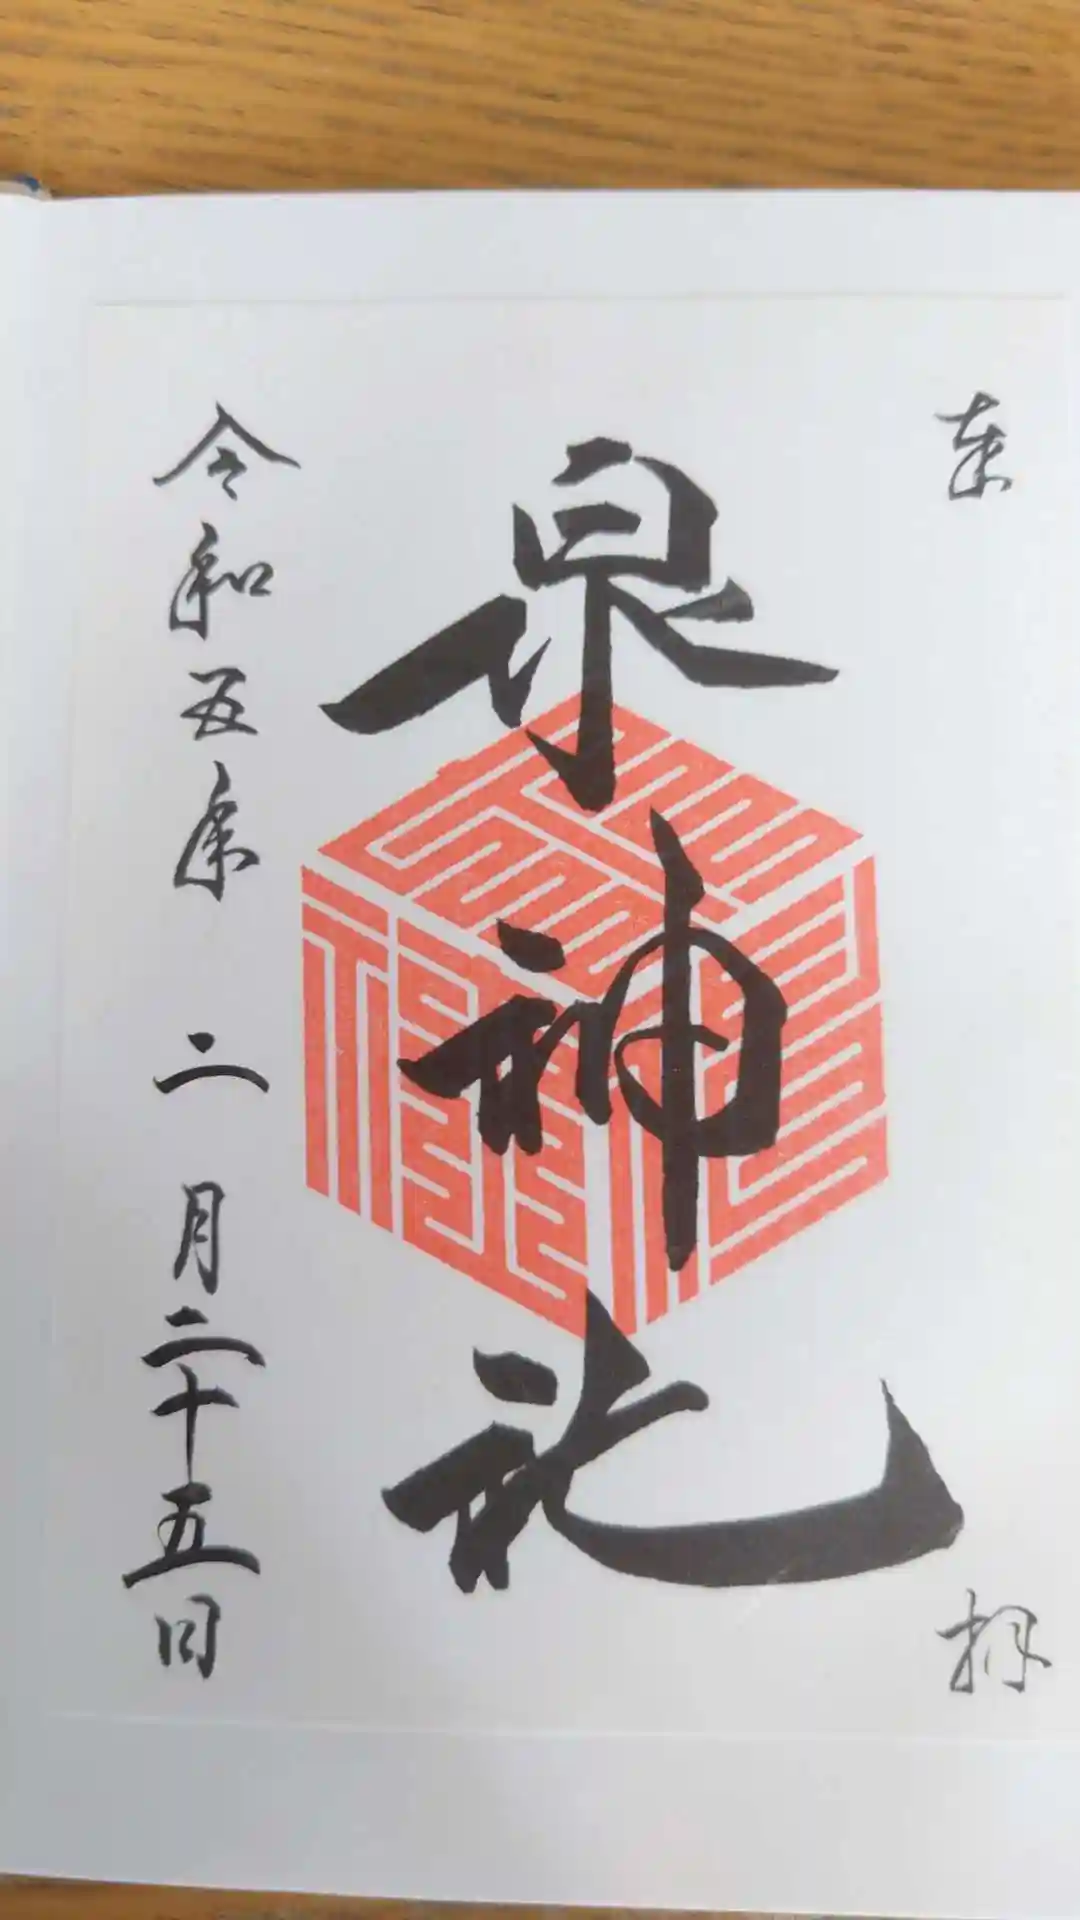 奉拝
泉神社
令和五年二月二十五日